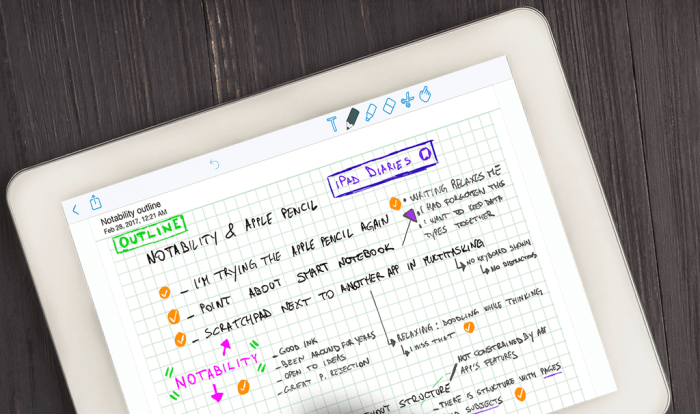 Notability outline
Feb 28, 2017, 12:21 AM
iPAD DIARIES
OUTLINE
NOTABILITY & APPLE PENCIL
- I'M TRYING THE APPLE PENCIL AGAIN
• WRITING RELAXES ME
I HAD FORGOTTEN THIS
• I WANT TO KEEP DATA
TYPES TOGETHER
- POINT ABOUT START NOTEBOOK
- SCRATCHPAD NEXT TO ANOTHER APP IN MULTITASKING
NO KEYBOARD SHOWN
NO DISTRACTIONS
RELAXING: DOODLING WHILE THINKING
I MISS THAT
"NOTABILITY"
- GOOD INK
- BEEN AROUND FOR YEARS
- OPEN TO IDEAS
- GREAT P. REJECTION
STRUCTURE
NOT CONSTRAINED BY AN
APP'S FEATURES
- THERE IS STRUCTURE WITH PAGES
SUBJECTS